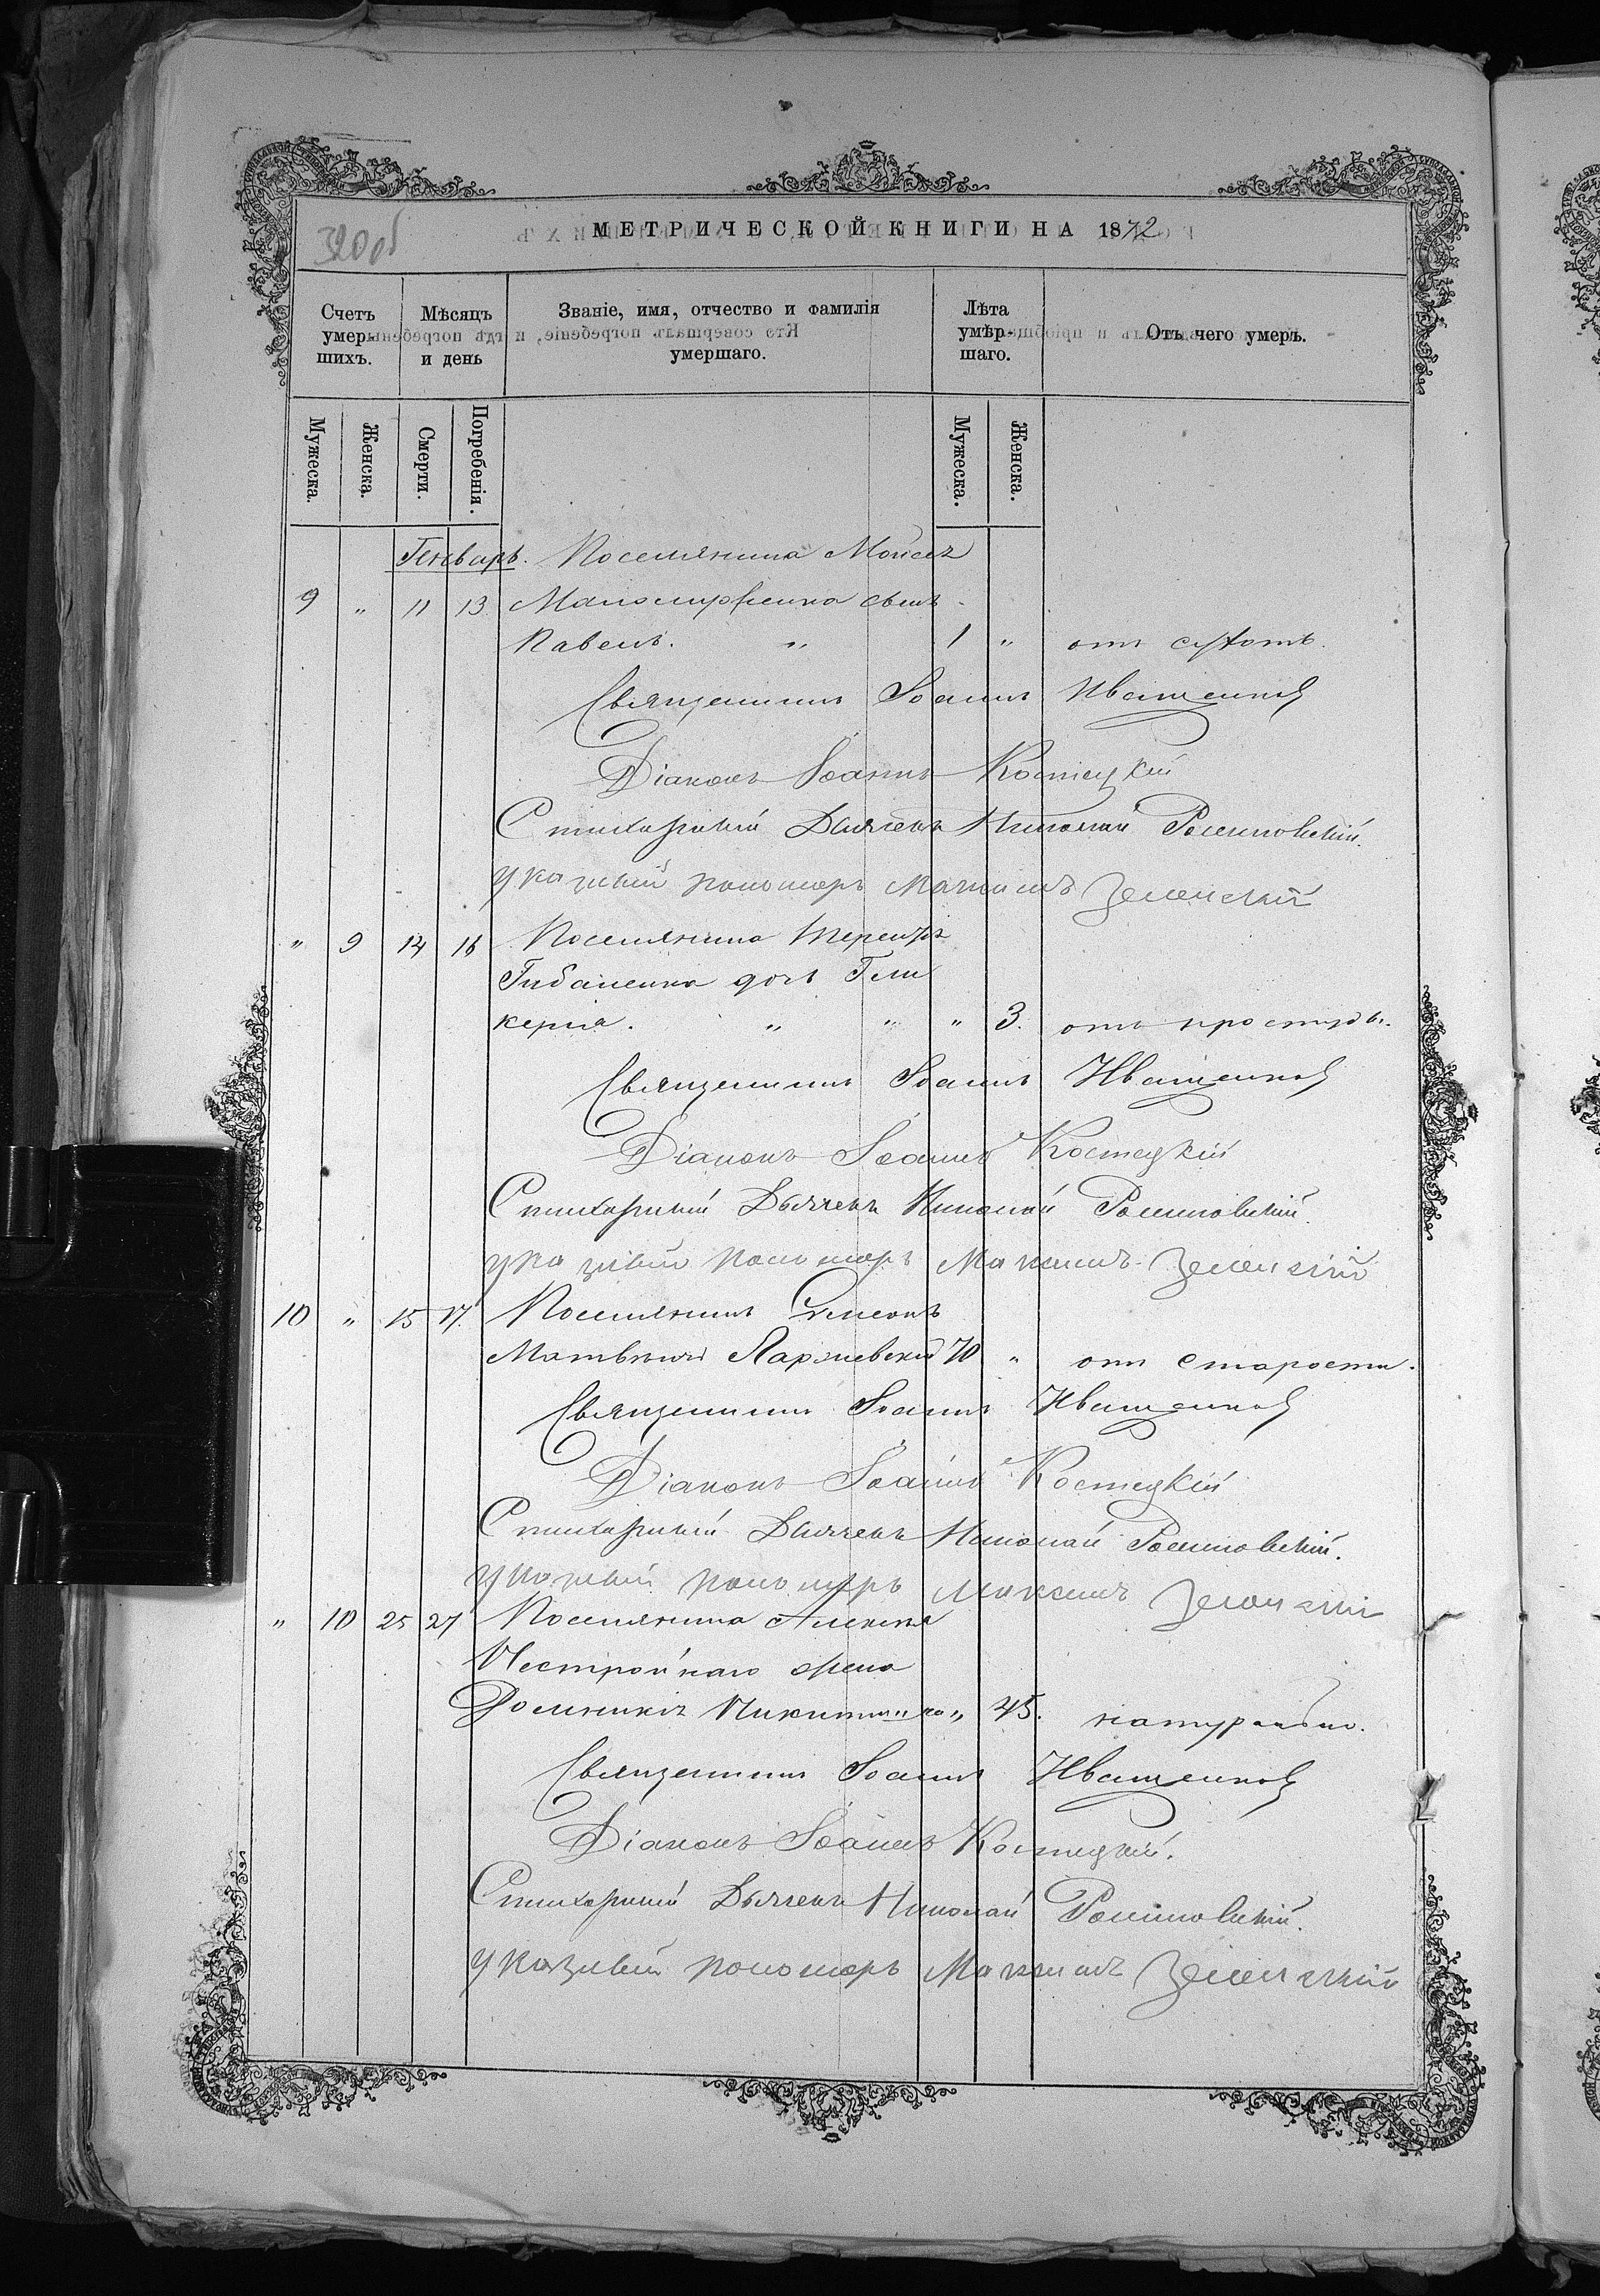 320об
МЕТРИЧЕСКОЙ КНИГИ НА 1872
Счетъ умер- шихъ.
Мѣсяцъ и день
Званіе, имя, отчество и фамилія умершаго.
Лѣта умѣр- шаго.
Отъ чего умеръ.
Мужеска.
Женска.
Смерти.
Погребенія.
Мужеска.
Женска.
Генварь. Поселянина Моисея
9 „ 11 13 сынъ
Павелъ. „ 1 „ отъ
Священникъ Іоаннъ Иващенко
Діаконъ Іоаннъ Костецкій
Стихарный Дьячекъ Николай
Указный пономарь Максимъ Зеленскій
„ 9 14 16 Поселянина Терентія
Гибаленка дочь Гли
керія. „ „ „ 3. отъ простуды.
Священникъ Іоаннъ Иващенко
Діаконъ Іоаннъ Костецкій
Стихарный Дьячекъ Николай
Указный пономарь Максимъ Зеленскій
10 „ 15 17. Поселянинъ Симеонъ
Матвѣевъ 70 „ отъ старости.
Священникъ Іоаннъ Иващенко
Діаконъ Іоаннъ Костецкій
Стихарный Дьячекъ Николай
Указный пономарь Максимъ Зеленскій
„ 10 25 27 Поселянина Алексѣя
Нестройнаго жена
Домникія Никитина „ 45. натурально.
Священникъ Іоаннъ Иващенко
Діаконъ Іоаннъ Костецкій.
Стихарный Дьячекъ Николай
Указный пономарь Максимъ Зеленскій